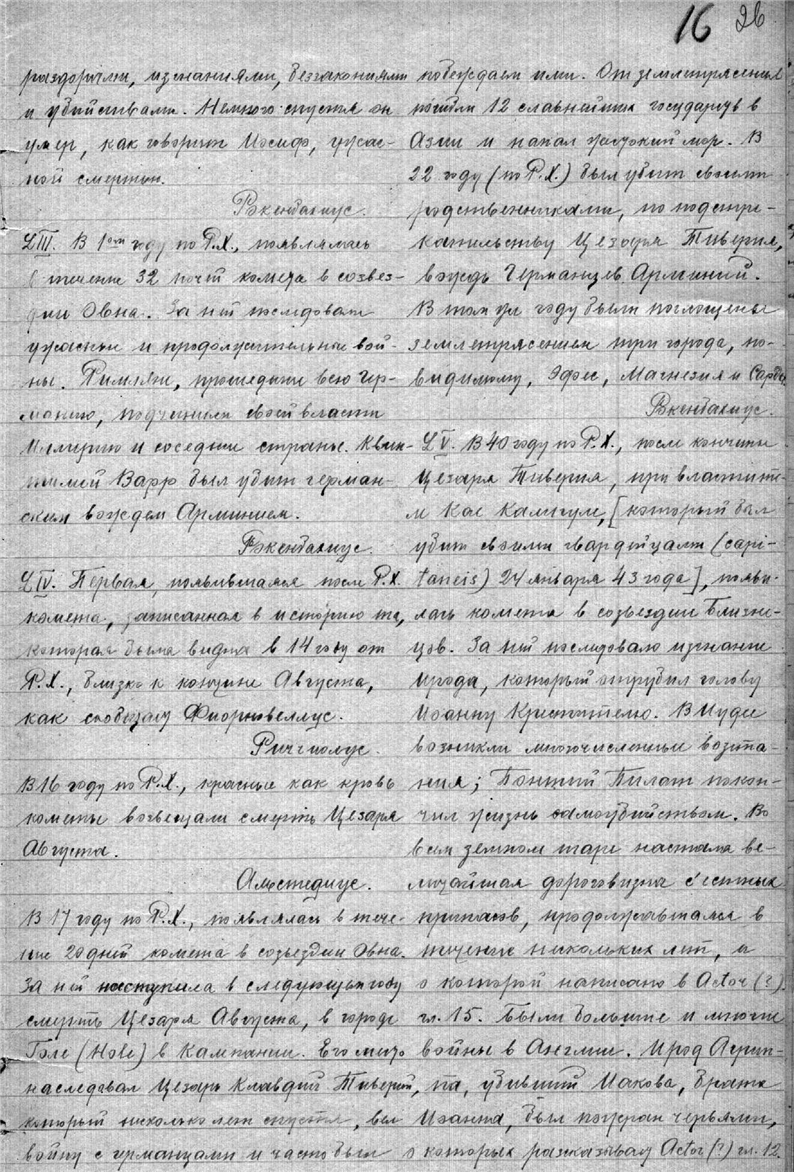 16 26
раздорами, изгнаниями, беззакониями
и убийствами. Немного спустя он
умер, как говорит Иосиф, ужас-
ной смертью.
Рокенбахиус.
LIII. В 1ом году по Р.Х., появлялась
в течение 32 ночей комета в созвез-
дии Овна. За ней последовали
ужасные и продолжительные вой-
ны. Римляне, прошедшие всю Гер-
манию, подчинили своей власти
Иллирию и соседние страны. Квин-
тилий Варр был убит герман-
ским вождем Арминием.
Рокенбахиус.
LIV. Первая, появившаяся после Р.Х.
комета, записанная в историю та,
которая была видна в 14 году от
Р.Х., близко к кончине Августа,
как сообщает Фиорновеллус.
Риччиолус.
В 16 году по Р.Х., красные как кровь
кометы возвещали смерть Цезаря
Августа.
Альстедиус.
В 17 году по Р.Х., появлялась в тече-
ние 20 дней комета в созвездии Овна.
За ней наступила в следующем году
смерть Цезаря Августа, в городе
Голе (Hole) в Кампании. Его место
наследовал Цезарь Клавдий Тиверий,
который несколько лет спустя, вел
войну с германцами и часто были
побеждаем ими. От землетрясения
погибли 12 славнейших государств в
Азии и напал жестокий мор. В
22 году (по Р.Х.) был убит своими
родственниками, по подстре-
кательству Цезаря Тиверия,
вождь Германцев Арминий.
В том же году были поглощены
землетрясением три города, по-
видимому, Эфес, Магнезия и Сарды.
Рокенбахиус.
LV. В 40 году по Р.Х., после кончины
Цезаря Тиверия, при властите-
ле Кае Калигуле, [который был
убит своими гвардейцами (capi-
taneis) 24 января 43 года], появи-
лась комета в созвездии Близне-
цов. За ней последовало изгнание
Ирода, который отрубил голову
Иоанну Крестителю. В Иудее
возникли многочисленные возста-
ния; Понтий Пилат покон-
чил жизнь самоубийством. Во
всем земном шаре настала ве-
личайшая дороговизна с'естных
припасов, продолжавшаяся в
течение нескольких лет, и
о которой написано в Actor (?)
гл. 15. Были большие и многие
войны в Англии. Ирод Агрип-
па, убивший Иакова, брата
Иоанна, был пожран червями,
о которых рассказывает Actor (?) гл. 12.